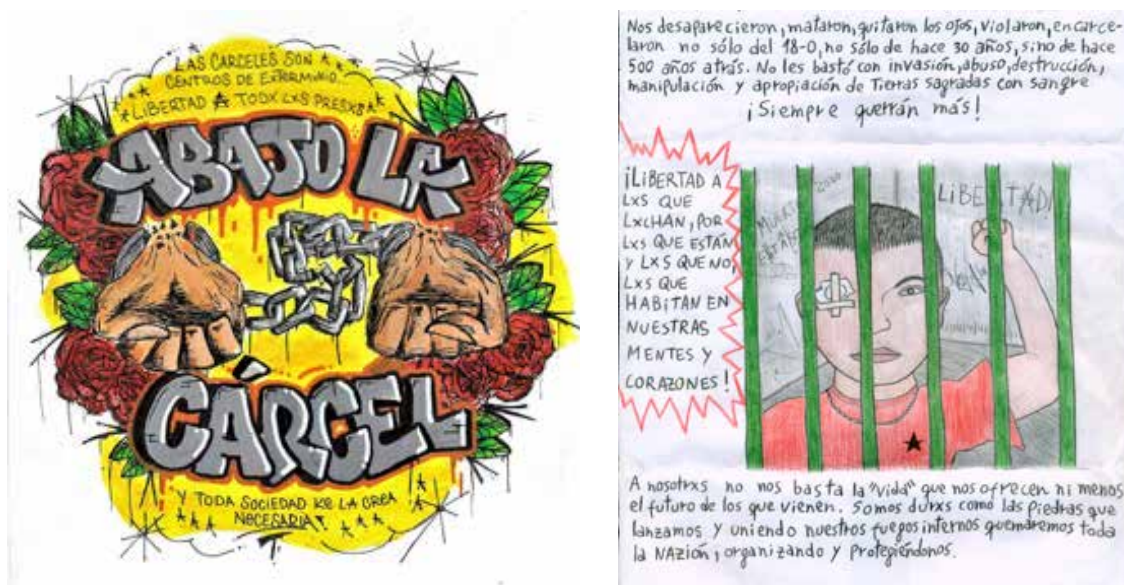 LAS CARCELES SON
CENTROS DE EXTERMINIO.
LIBERTAD A TODX LXS PRESXS
ABAJO LA
CÁRCEL
Y TODA SOCIEDAD KE LA CREA
NECESARIA
Nos desaparecieron, mataron, quitaron los ojos, violaron, encarce-
laron no sólo del 18-O, no sólo de hace 30 años, sino de hace
500 años atrás. No les bastó con invasión, abuso, destrucción,
manipulación y apropiación de Tierras sagradas con sangre
¡Siempre querrán más!
¡LIBERTAD A
LXS QUE
LXCHAN, POR
LXS QUE ESTÁN
Y LXS QUE NO,
LXS QUE
HABITAN EN
NUESTRAS
MENTES Y
CORAZONES!
LIBERTAD
A nosotrxs no nos basta la "vida" que nos ofrecen ni menos
el futuro de los que vienen. Somos durxs como las piedras que
lanzamos y uniendo nuestros fuegos internos quemaremos toda
la NAZIón, organizando y protegiéndonos.